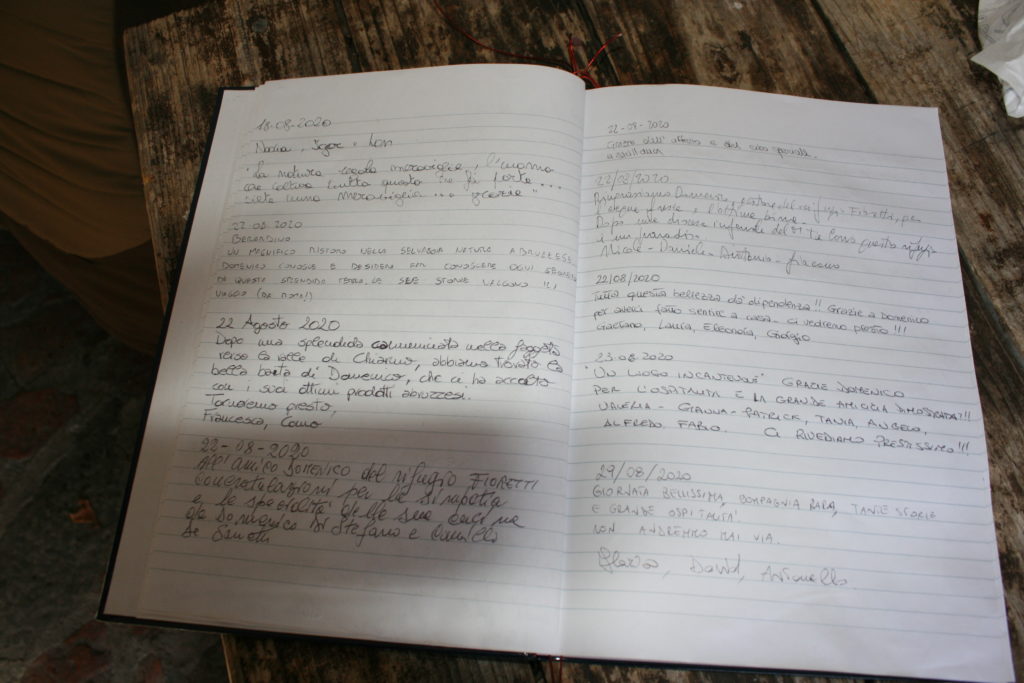 18-08-2020
"La natura crea meraviglie, l'uomo
che coltiva tutto questo è più forte...
siete una meraviglia... grazie"
22 08 2020
Berardino
UN MAGNIFICO RISTORO NELLA SELVAGGIA NATURA ABRUZZESE
DOMENICO CONOSCE E DESIDERA FAR CONOSCERE OGNI SEGRETO
DI QUESTA SPLENDIDA TERRA. LE SUE STORIE VALGONO IL
VIAGGIO (DA ROMA!)
22 Agosto 2020
Dopo una splendida camminata nella faggeta
verso la valle di Chiarino, abbiamo trovato la
bella baita di Domenico, che ci ha accolto
con i suoi ottimi prodotti abruzzesi.
Torneremo presto,
Francesca, Como
22-08-2020
All'amico Domenico del rifugio FIORETTI
congratulazioni per la simpatia
e le specialità delle sue cucine
da Domenico Di Stefano e Camillo
De Sanctis
22-08-2020
Grazie dell'
22/08/2020
Ringraziamo Domenico, gestore del rifugio Fioretti, per
l'acqua fresca e l'ottimo
Dopo una discesa infernale dal M.te Corvo questo rifugio
è un paradiso
Nicola - Daniele - Antonio - Giacomo
22/08/2020
Tutta questa bellezza dà dipendenza!! Grazie a Domenico
per averci fatto sentire a casa. Ci vedremo presto!!!
Gaetano, Laura, Eleonora, Giorgio
23.08.2020
"UN LUOGO INCANTEVOLE" GRAZIE DOMENICO
PER L'OSPITALITÀ E LA GRANDE AMICIZIA DIMOSTRATA!!!
VALERIA - GIANNA - PATRICK, TANIA, ANGELO,
ALFREDO, FABIO. CI RIVEDIAMO PRESTISSIMO!!!
29/08/2020
GIORNATA BELLISSIMA, COMPAGNIA RARA, TANTE STORIE
E GRANDE OSPITALITÀ.
NON ANDREMMO MAI VIA.
Flavia, David, Antonella